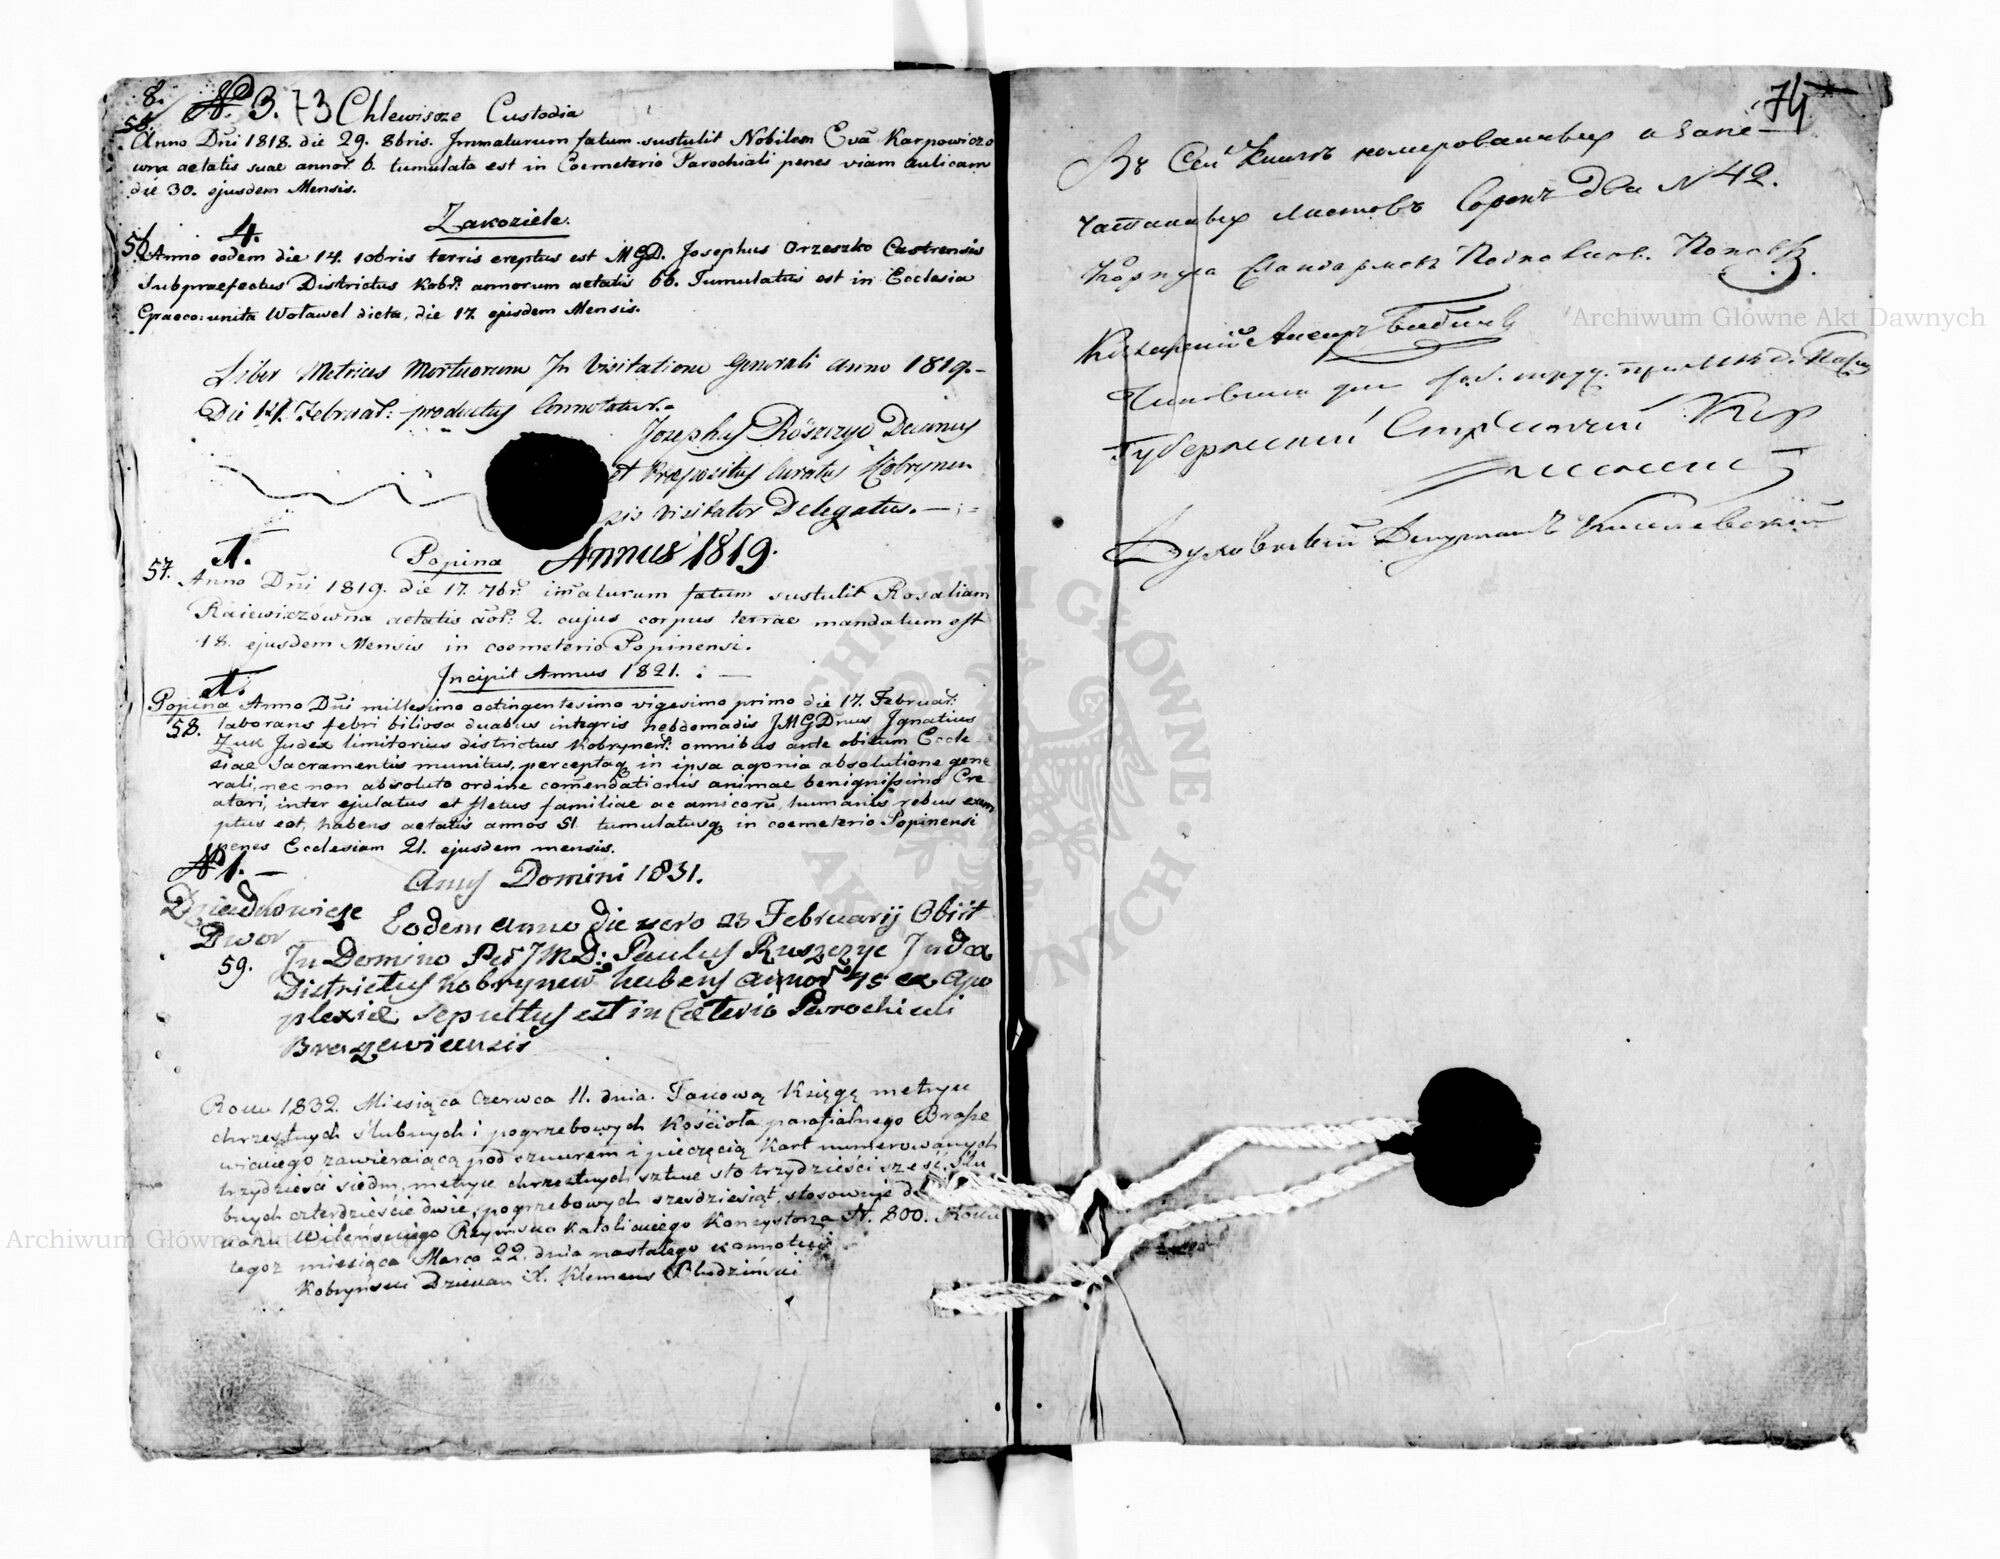 8. № 3. 73 Chlewiszcze Custodia
Anno Dni 1818. die 29. 8bris. Immaturum fatum sustulit Nobilem Evã Karpowiczo
wna aetatis suae annor. 6. tumulata est in Coemeterio Parochiali penes viam Aulicam
die 30. ejusdem Mensis.
4. Zakoziele.
56. Anno eodem die 14. 10bris terris ereptus est MGD. Josephus Orzeszko Castrensis
Subpraefectus Districtus Kobr: annorum aetatis 66. Tumulatus est in Ecclesia
Graeco: unita Woławel dicta, die 17 ejusdem Mensis.
Liber Metrices Mortuorum In Visitatione Generali anno 1819.
Die Februar: productus Connotatur.
Josephus Rószczyc Decanus
et Praepositus Curatus Kobrynen
sis Visitator Delegatus.
1. Popina Annus 1819.
57. Anno Dni 1819. die 17. 7br. imaturum fatum sustulit Rosaliam
Raiewiczówna aetatis aor: 2. cujus corpus terrae mandatum est
18. ejusdem Mensis in coemeterio Popinensi.
Incipit Annus 1821.
1.
Popina Anno Dni millesimo octingentesimo vigesimo primo die 17. Februar:
58. laborans febri biliosa duabus integris hebdomadis JMGDnus Ignatius
Żuk Judex limitorius districtus Kobrynen: omnibus ante obitum Eccle
siae Sacramentis munitus, perceptaq in ipsa agonia absolutione gene
rali, nec non absoluto ordine comendationis animae benignissimo Cre
atori, inter ejulatus et fletus familiae ac amicorũ, humanis rebus exem
ptus est, habens aetatis annos 51 tumulatusq in coemeterio Popinensi
penes Ecclesiam 21. ejusdem mensis.
№ 1. Anus Domini 1831.
Dziadkowicze Eodem anno die vero 23 Februarij Obiit
Dwor In Domino JMD: Paulus Ruszczyc Judex
59. Districtus Kobrynen habens annor 75 ex apo
plexia sepultus est in Parochiali
Brezewicensis
Roku 1832. Miesiąca Czerwca 11. dnia. Takową Księgę metryk
chrzestnych ślubnych i pogrzebowych Kościoła parafialnego Brasze
wickiego zawieraiącą pod sznurem i pieczęcią kart numerowanych
trzydzieści siedm, metryk chrzestnych sztuk sto trzydzieści sześć, Slu
bnych czterdzieście dwie, pogrzebowych szesdziesiąt, stosownie do
ukazu Wilenskiego Rzymsko Katolickiego Konsystorza N. 800. Roku
tegoż miesiąca Marca 22. dnia nastałego
Kobryński Dziekan X. Klemens Bludziński
74
Въ Сей Книгѣ нумерованныхъ и Запе
чатанныхъ листовъ Сорокъ Два N 42.
Корпуса Жандармовъ Подполковн. Поповъ
Губернский Стряпчий
Духовный Депутатъ Киселевский
Archiwum Główne Akt Dawnych
Archiwum Główne Akt Dawnych
ARCHIWUM GŁÓWNE AKT DAWNYCH